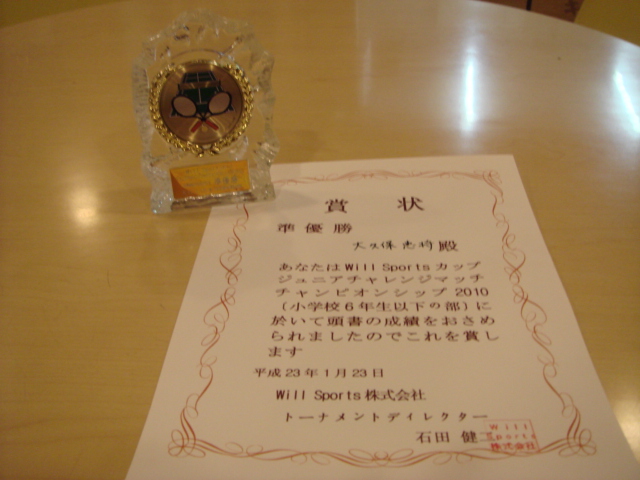 賞状
準優勝
大久保 殿
あなたはWill Sportsカップ
ジュニアチャレンジマッチ
チャンピオンシップ2010
(小学校6年生以下の部)に
於いて頭書の成績をおさめ
られましたのでこれを賞し
ます
平成23年1月23日
Will Sports株式会社
トーナメントディレクター
石田 健一
Will
Sports
株式会社